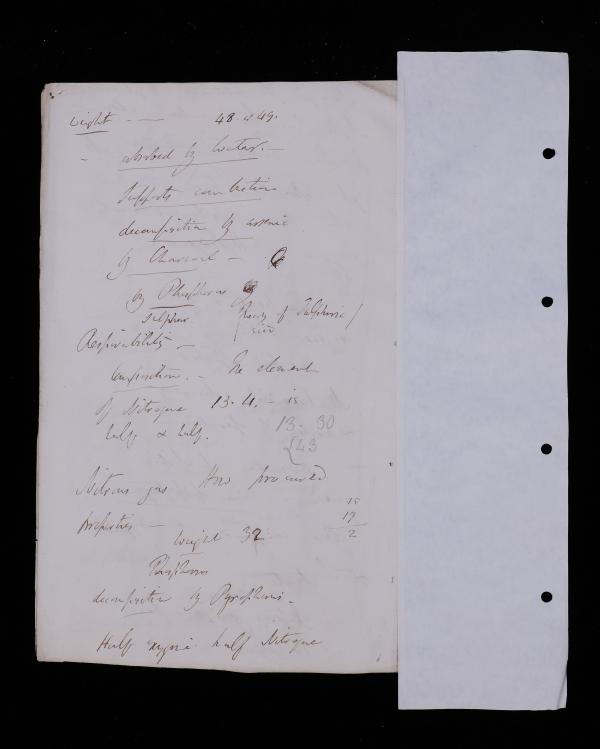 Weight - — 48 or 49.
- absorbed by Water. —
Supports combustion
decomposition by arsenic
by Charcoal —
by Phosphorus
Sulphur. Theory of Sulphuric /
acid
Respirability —
Composition. - The element
of Nitrogene 13.4. - is
half & half. 13. 30
{43
Nitrous gas How procured
15
properties — 17
2
Weight 32
Phosphorus
decomposition by Pyrophorus -
Half oxygene half Nitrogene